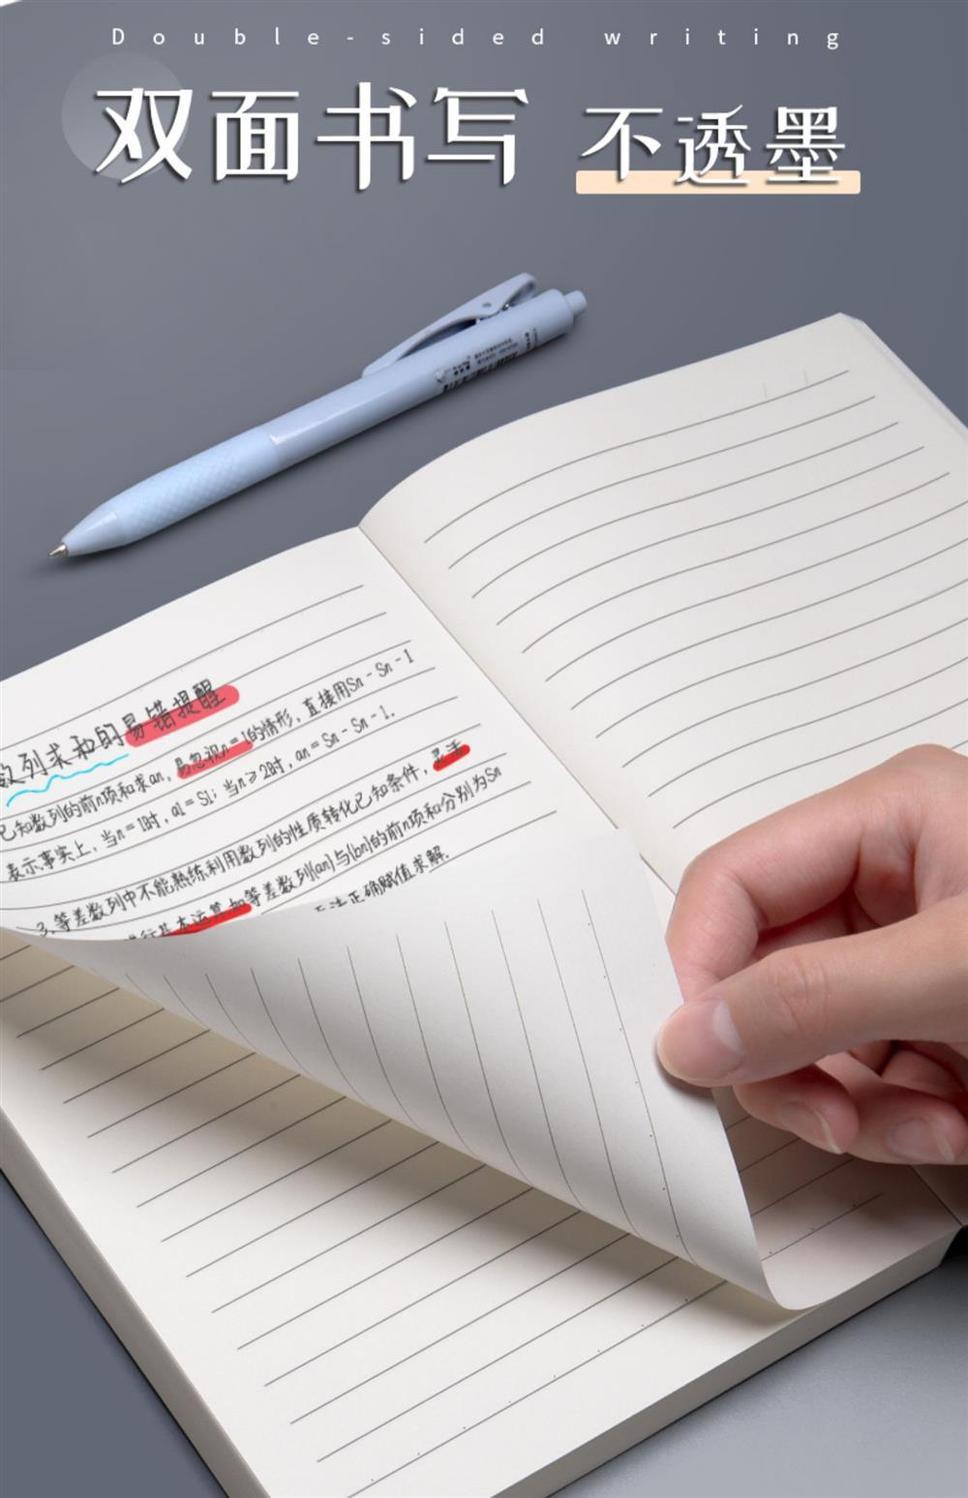 Double-sided writing
双面书写 不透墨
数列求和的易错提醒
已知数列的前n项和求an，易忽视n=1的情形，直接用Sn-Sn-1
表示事实上，当n=1时，a1=S1；当n≥2时，an=Sn-Sn-1.
3.等差数列中不能熟练利用数列的性质转化已知条件，灵活
行基本运算如等差数列{an}与{bn}的前n项和分别为Sn
正确赋值求解.